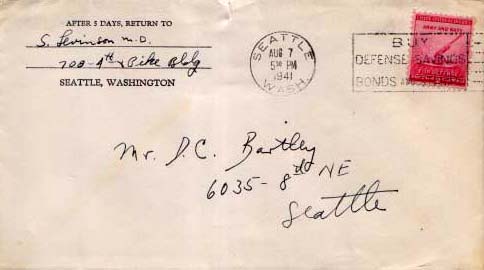 AFTER 5 DAYS, RETURN TO
S. Levinson M.D.
700-4th & Pike Bldg
SEATTLE, WASHINGTON
SEATTLE
AUG 7
5 PM
1941
WASH.
ARMY AND NAVY
BUY
DEFENSE SAVINGS
BONDS
Mr. D.C. Bartley
6035-8th NE
Seattle